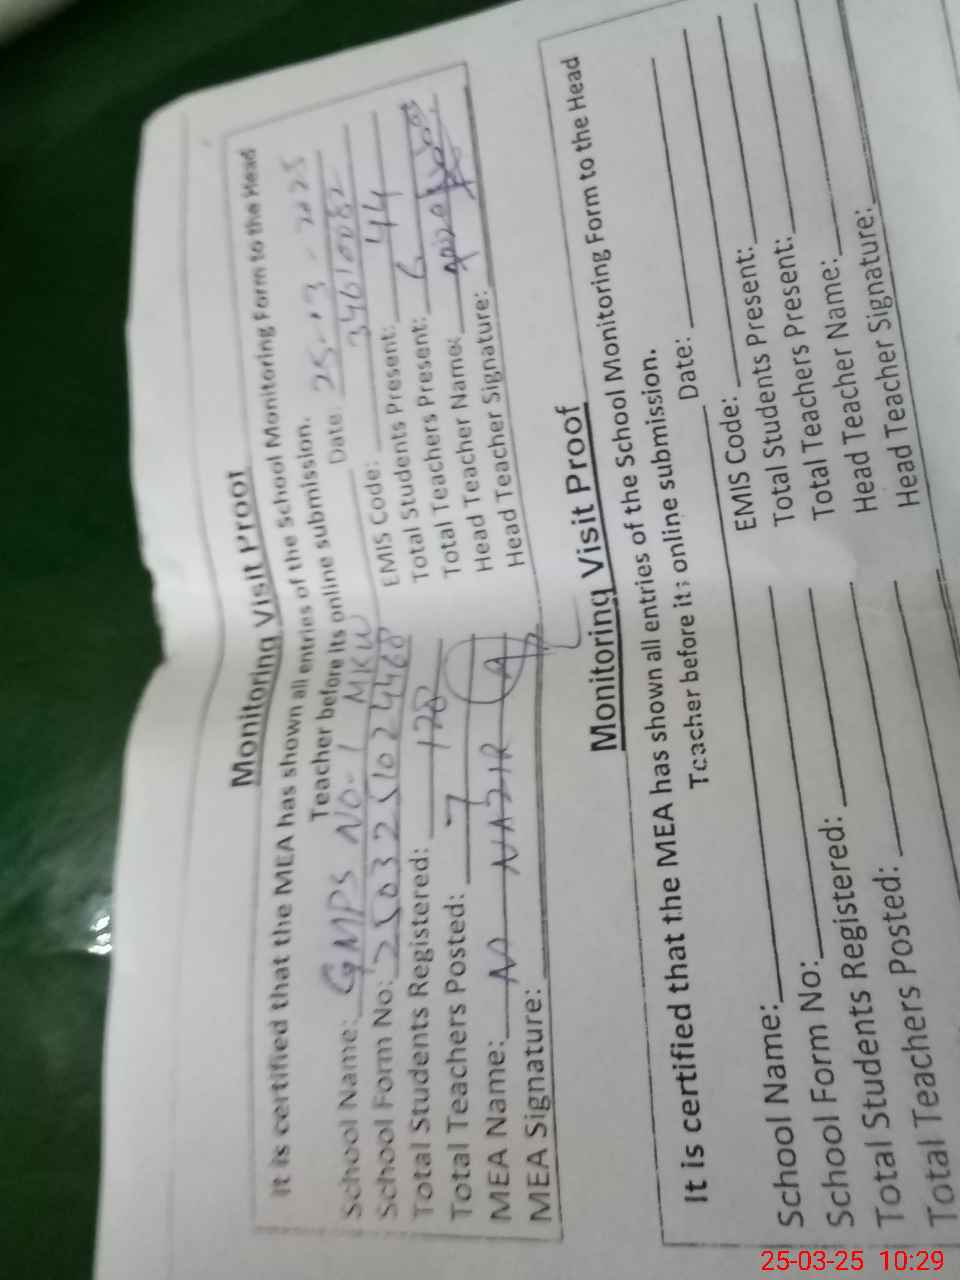 Monitoring Visit Proof
It is certified that the MEA has shown all entries of the School Monitoring Form to the Head
Teacher before its online submission.
Date: 25-03-2025
School Name: GMPS NO-1 MKW
EMIS Code: 34610082
School Form No: 2503251024468
Total Students Present: 44
Total Students Registered: 128
Total Teachers Present: 6
Total Teachers Posted: 7
Head Teacher Name:
MEA Name: M NAZIR
Head Teacher Signature:
MEA Signature:
Monitoring Visit Proof
It is certified that the MEA has shown all entries of the School Monitoring Form to the Head
Teacher before its online submission.
Date:
School Name:
EMIS Code:
School Form No:
Total Students Present:
Total Students Registered:
Total Teachers Present:
Total Teachers Posted:
Head Teacher Name:
Head Teacher Signature:
25-03-25 10:29